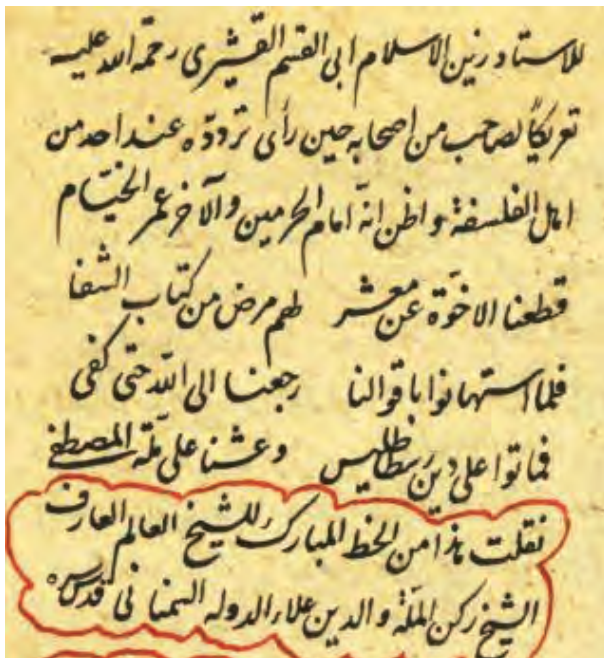 للاستاد زين الاسلام ابى القسم القشيرى رحمة الله عليه
تعريكاً لصاحب من اصحابه حين رأى تردده عند احد من
اهل الفلسفة و اظن انّه امام الحرمين والآخر عمر الخيّام
قطعنا الاخوّة عن معشر بهم مرض من كتاب الشفا
فلما استهانوا باقوالنا رجعنا الى الله حتى كفى
فماتوا على دين رسطاطليس وعشنا على ملّة المصطفى
نقلت هذا من الخط المبارك للشيخ العالم العارف
الشيخ ركن الملّة و الدين علاء الدوله السمنانى قدس سره